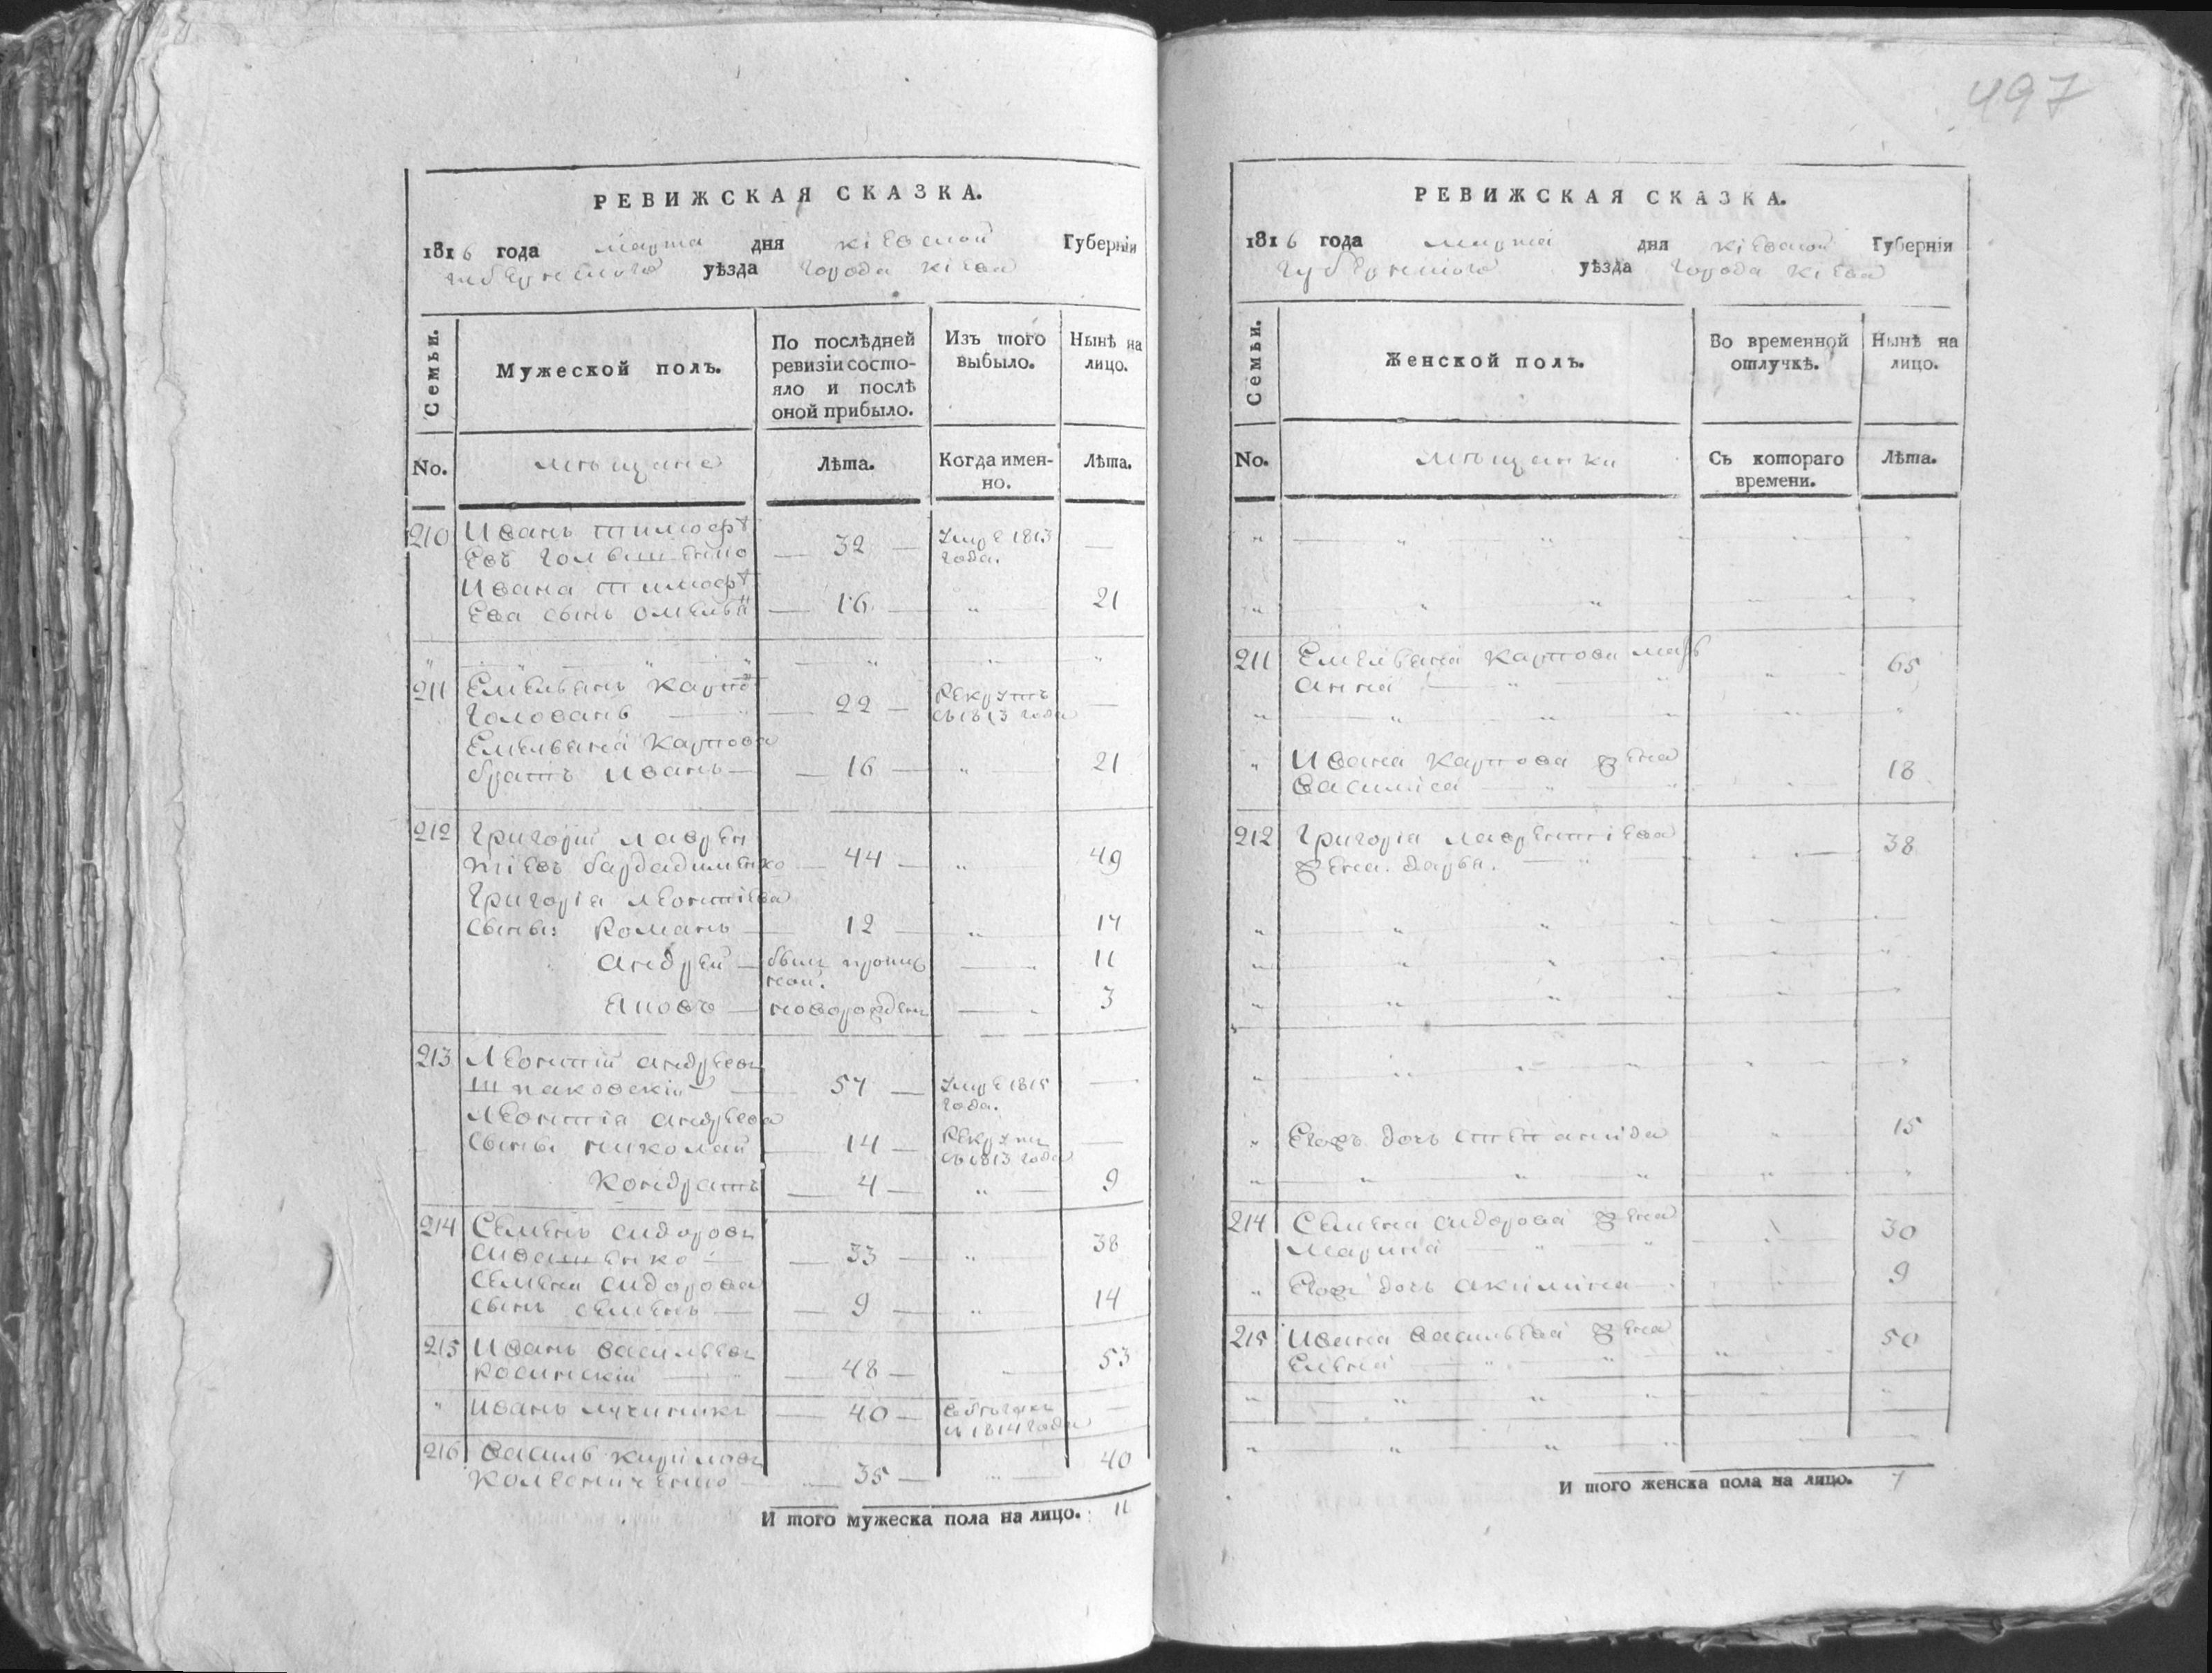 497
РЕВИЖСКАЯ СКАЗКА.
1816 года марта дня кіевской Губерніи
губернского уѣзда города кіева
Семьи.
Мужеской полъ.
По послѣдней ревизіи состо-
яло и послѣ
оной прибыло.
Изъ того
выбыло.
Нынѣ на
лицо.
No.
мѣщане
Лѣта.
Когда имен-
но.
Лѣта.
210 Иванъ тимофѣ
евъ — 32 — умре 1813
года. —
Ивана тимофѣ
ева сынъ омельꙗнъ — 16 — „ 21
211 Емельянъ карпо
Голованъ — 22 — рекрутъ
съ 1813 года —
Емельяна карпова
братъ иванъ — 16 — „ 21
212 Григорій лаврен
тіевъ бардадименко — 44 — „ 49
Григорія леонтіева
сыны: романъ — 12 — „ 17
андрей — былъ пропис
ной. — 11
яковъ — новорожденъ — 3
213 Леонтій андреевъ
шпаковскій — 57 — умре 1815
года. —
Леонтія андреева
сыны николай — 14 — рекрутъ
съ 1813 года —
кондратъ — 4 — „ 9
214 Семенъ сидоровъ
ивашенко — 33 — „ 38
Семена сидорова
сынъ семенъ — 9 — „ 14
215 Иванъ васильевъ
косинскій — 48 — 53
„ иванъ лучникъ — 40 —
съ 1814 года —
216 василь кириловъ
колесниченко — 35 — 40
И того мужеска пола на лицо. 11
РЕВИЖСКАЯ СКАЗКА.
1816 года марта дня кіевской Губернія
губернского уѣзда города кіева
Семьи.
Женской полъ.
Во временной
отлучкѣ.
Нынѣ на
лицо.
No.
мѣщанки
Съ котораго
времени.
Лѣта.
211 Емельяна карпова мать
анна „ 65
„ Ивана карпова жена
василіса 18
212 Григорія лаврентіева 38
жена дарья.
„ Егожъ дочь степанида 15
214 Семена сидорова жена
марина 30
„ Егожъ дочь акилина 9
215 ивана васильева жена 50
елена
И того женска пола на лицо. 7